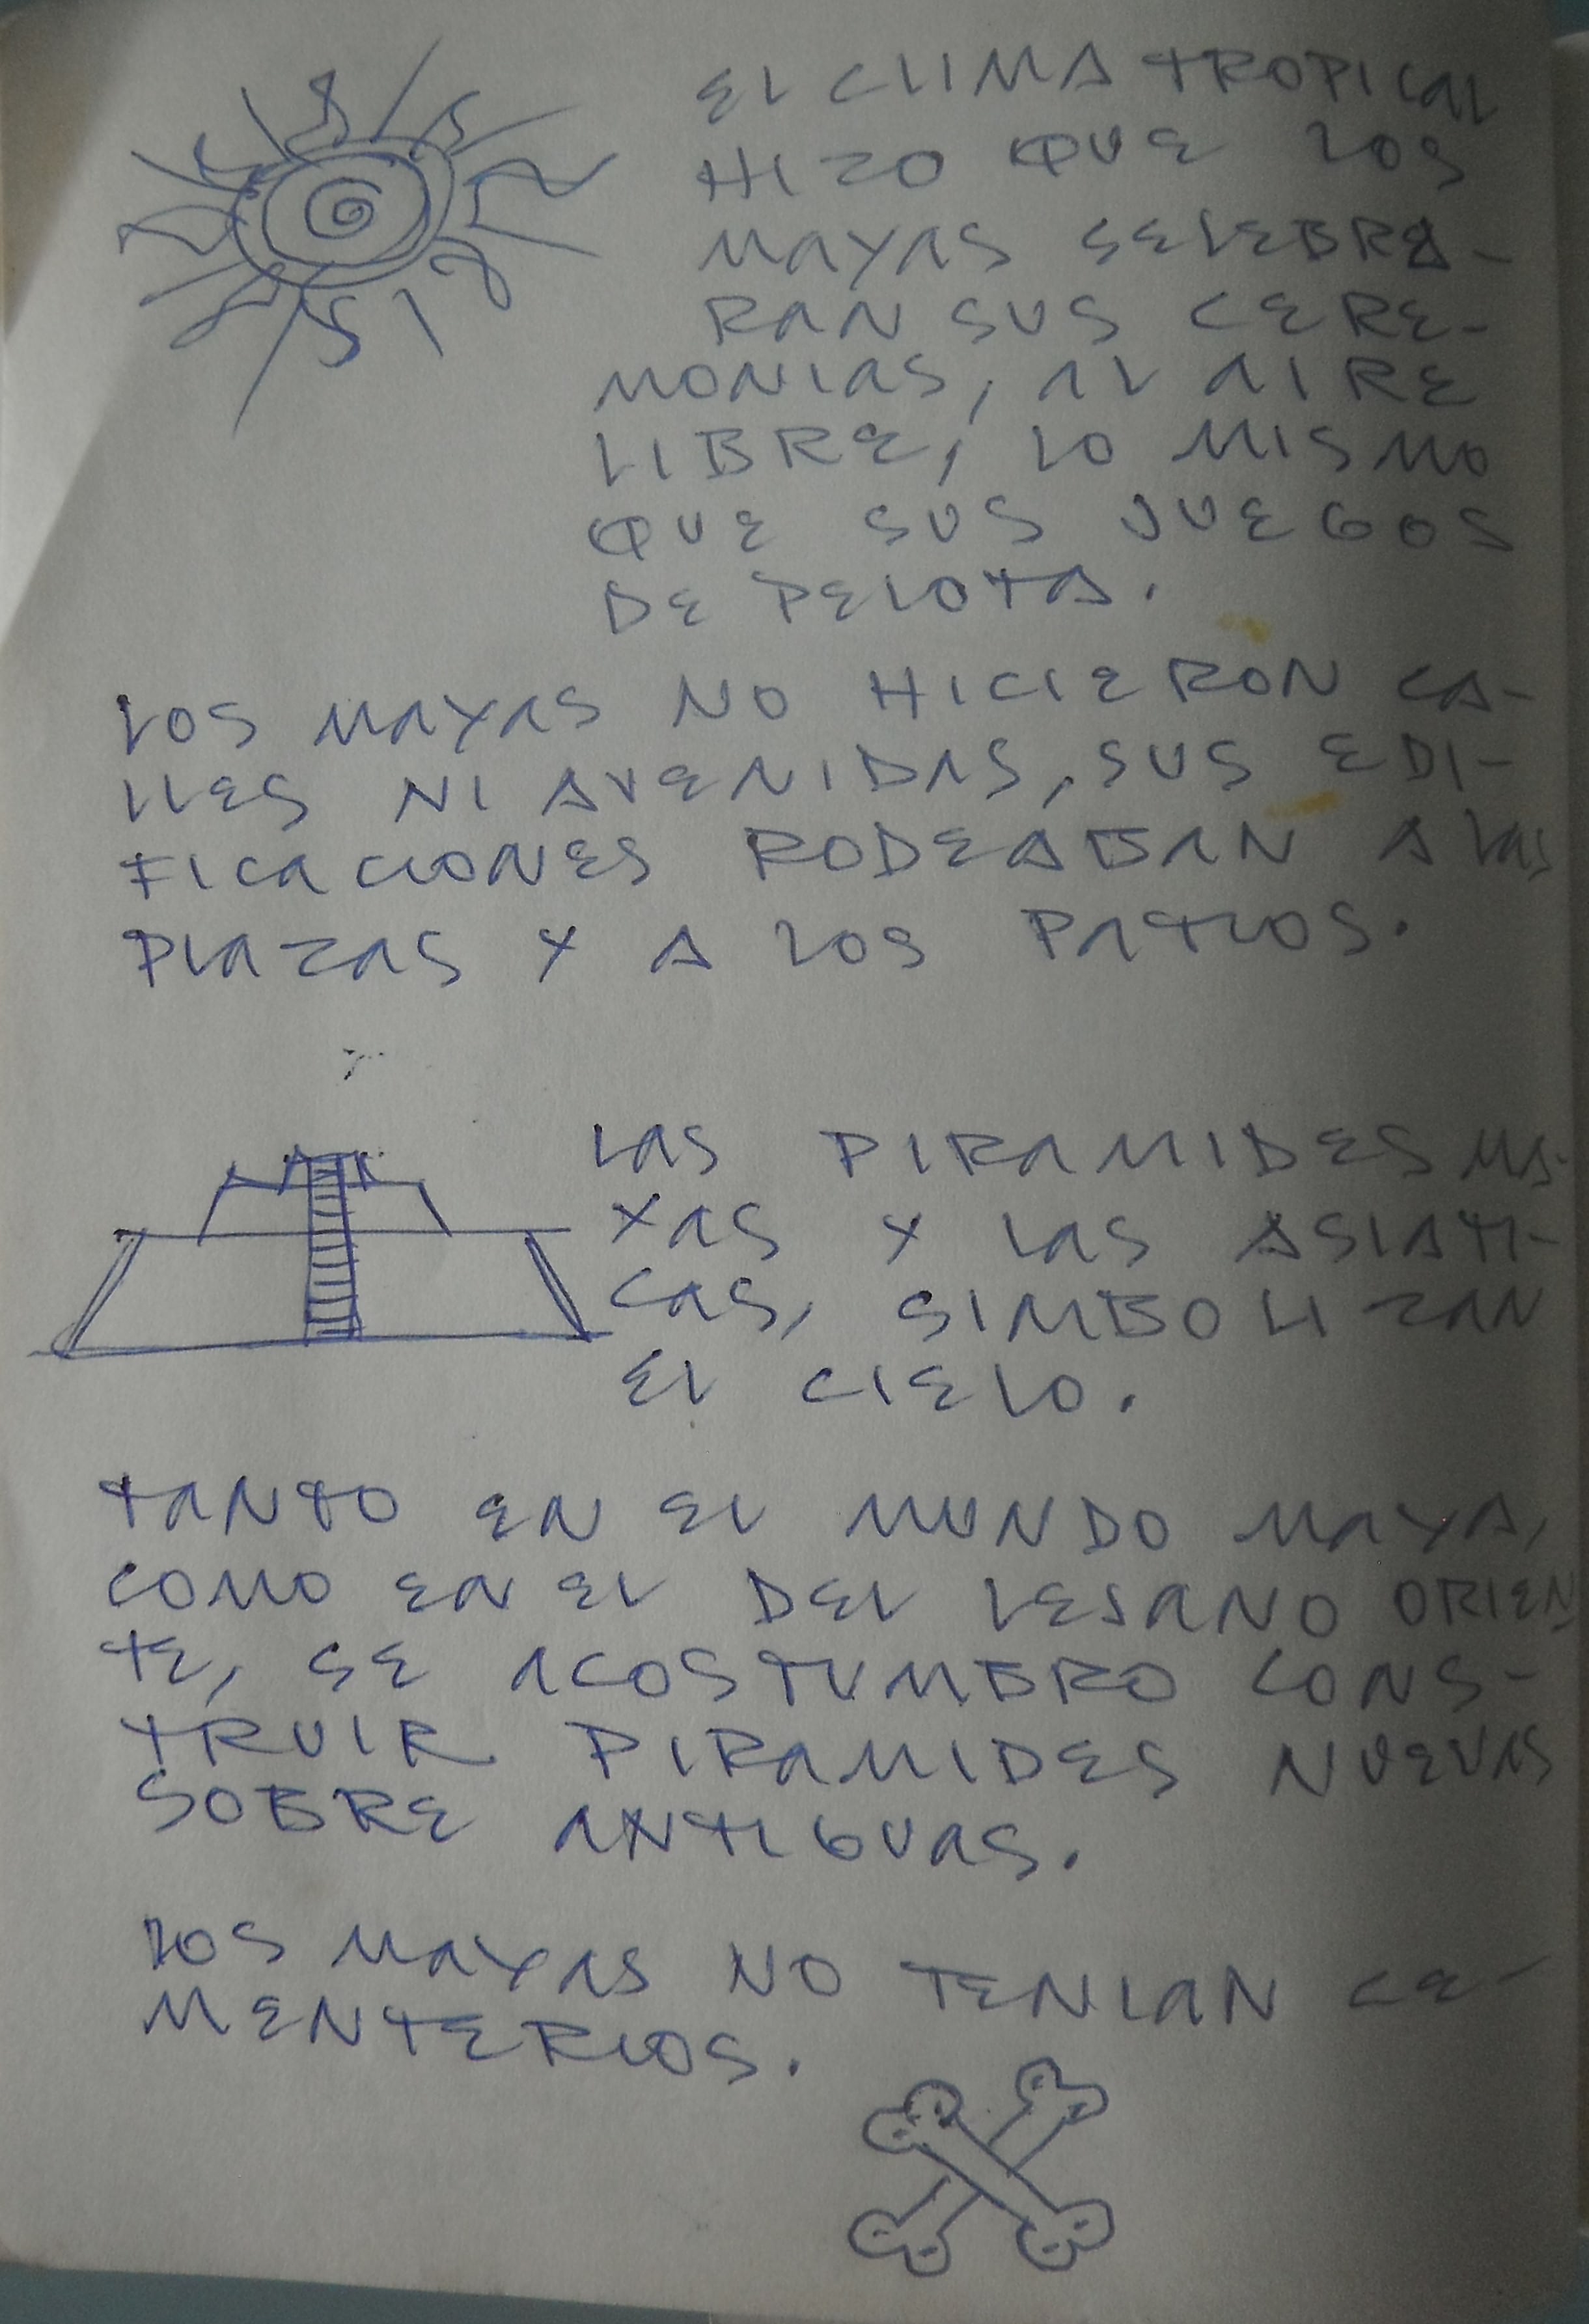 EL CLIMA TROPICAL
HIZO QUE LOS
MAYAS SELEBRA-
RAN SUS CERE-
MONIAS, AL AIRE
LIBRE, LO MISMO
QUE SUS JUEGOS
DE PELOTA.
LOS MAYAS NO HICIERON CA-
LLES NI AVENIDAS, SUS EDI-
FICACIONES RODEABAN A LAS
PLAZAS Y A LOS PATIOS.
LAS PIRAMIDES MA-
YAS Y LAS ASIATI-
CAS, SIMBOLIZAN
EL CIELO.
TANTO EN EL MUNDO MAYA,
COMO EN EL DEL LEJANO ORIEN
TE, SE ACOSTUMBRO CONS-
TRUIR PIRAMIDES NUEVAS
SOBRE ANTIGUAS.
LOS MAYAS NO TENIAN CE-
MENTERIOS.